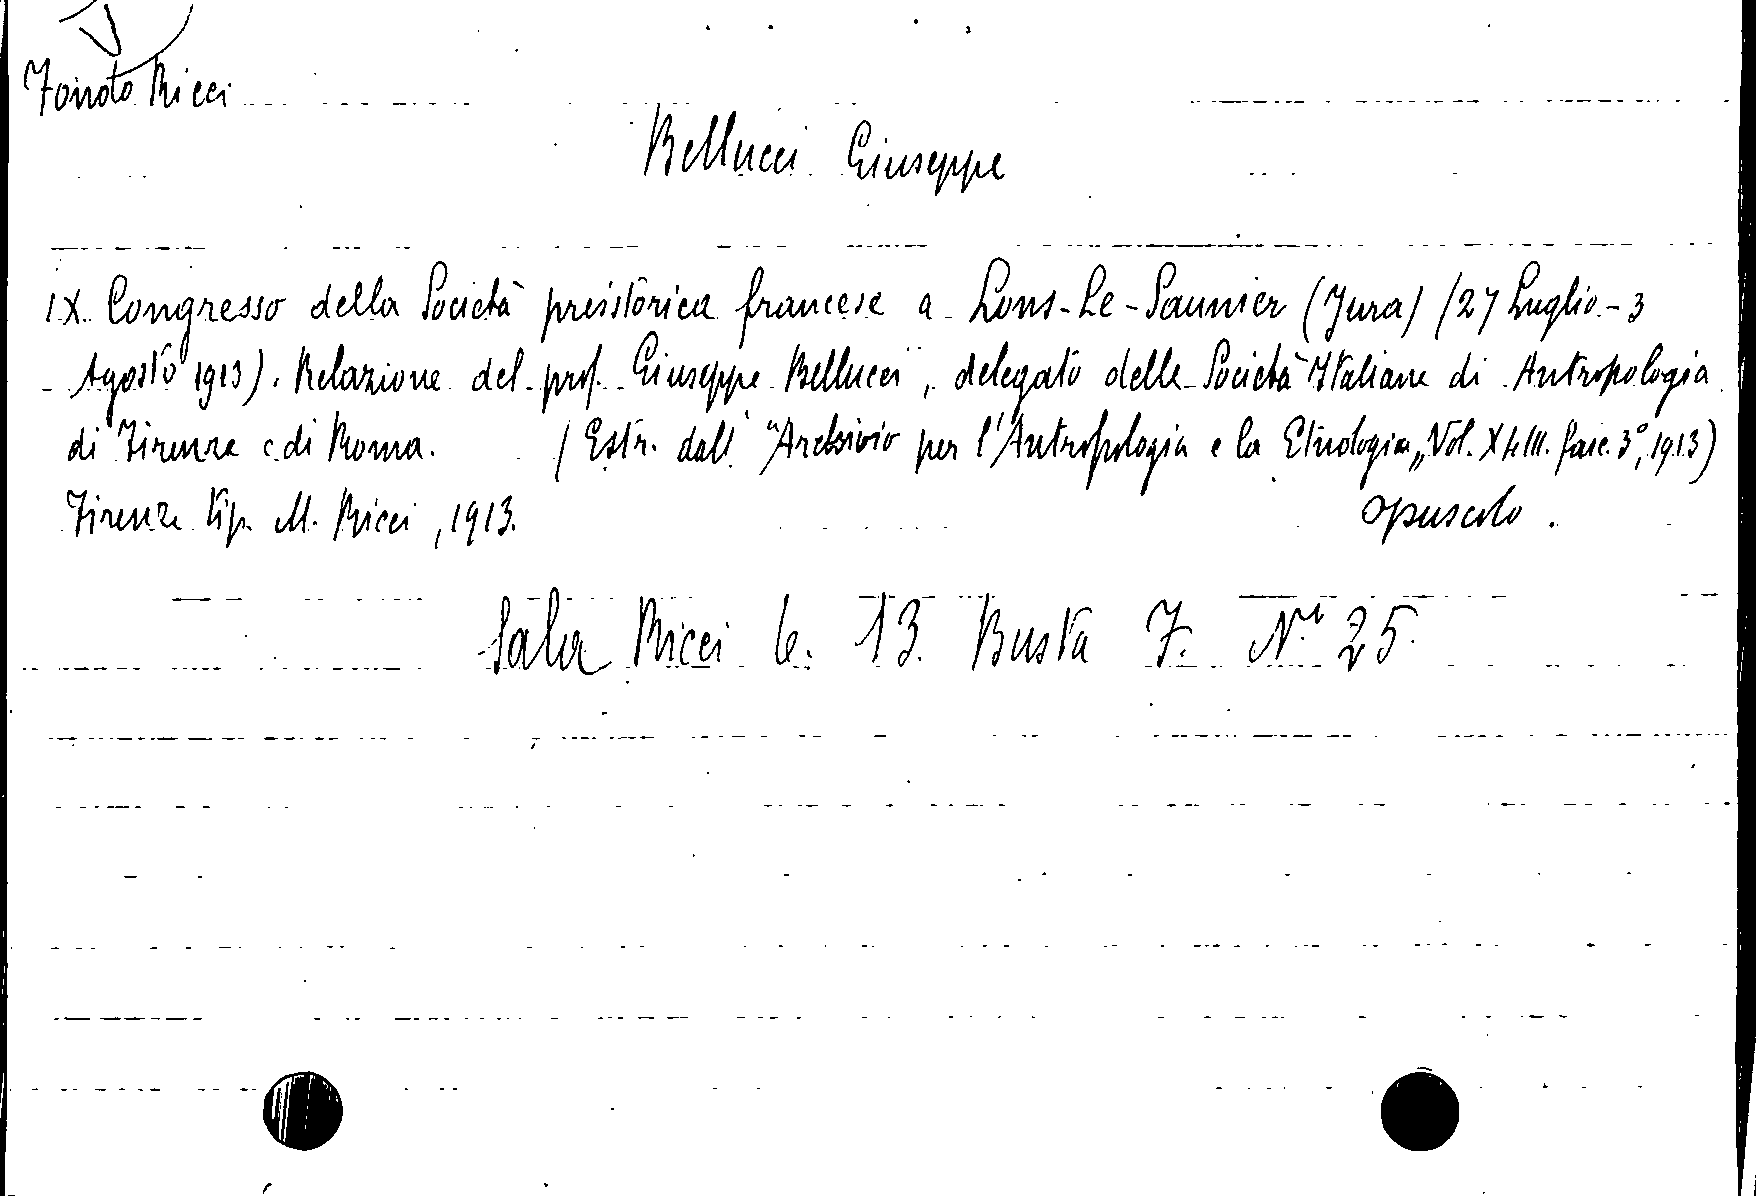 Fondo Ricci
Bellucci Giuseppe
IX Congresso della Società preistorica francese a Lons-Le-Saunier (Jura) (27 Luglio - 3
Agosto 1913). Relazione del prof. Giuseppe Bellucci, delegato delle Società Italiane di Antropologia
di Firenze e di Roma. (Estr. dall' "Archivio per l'Antropologia e la Etnologia„ Vol. XLIII. fasc. 3°, 1913)
Firenze tip. M. Ricci, 1913. opuscolo.
Sala Ricci 6. 13. Busta 7. N.° 25.